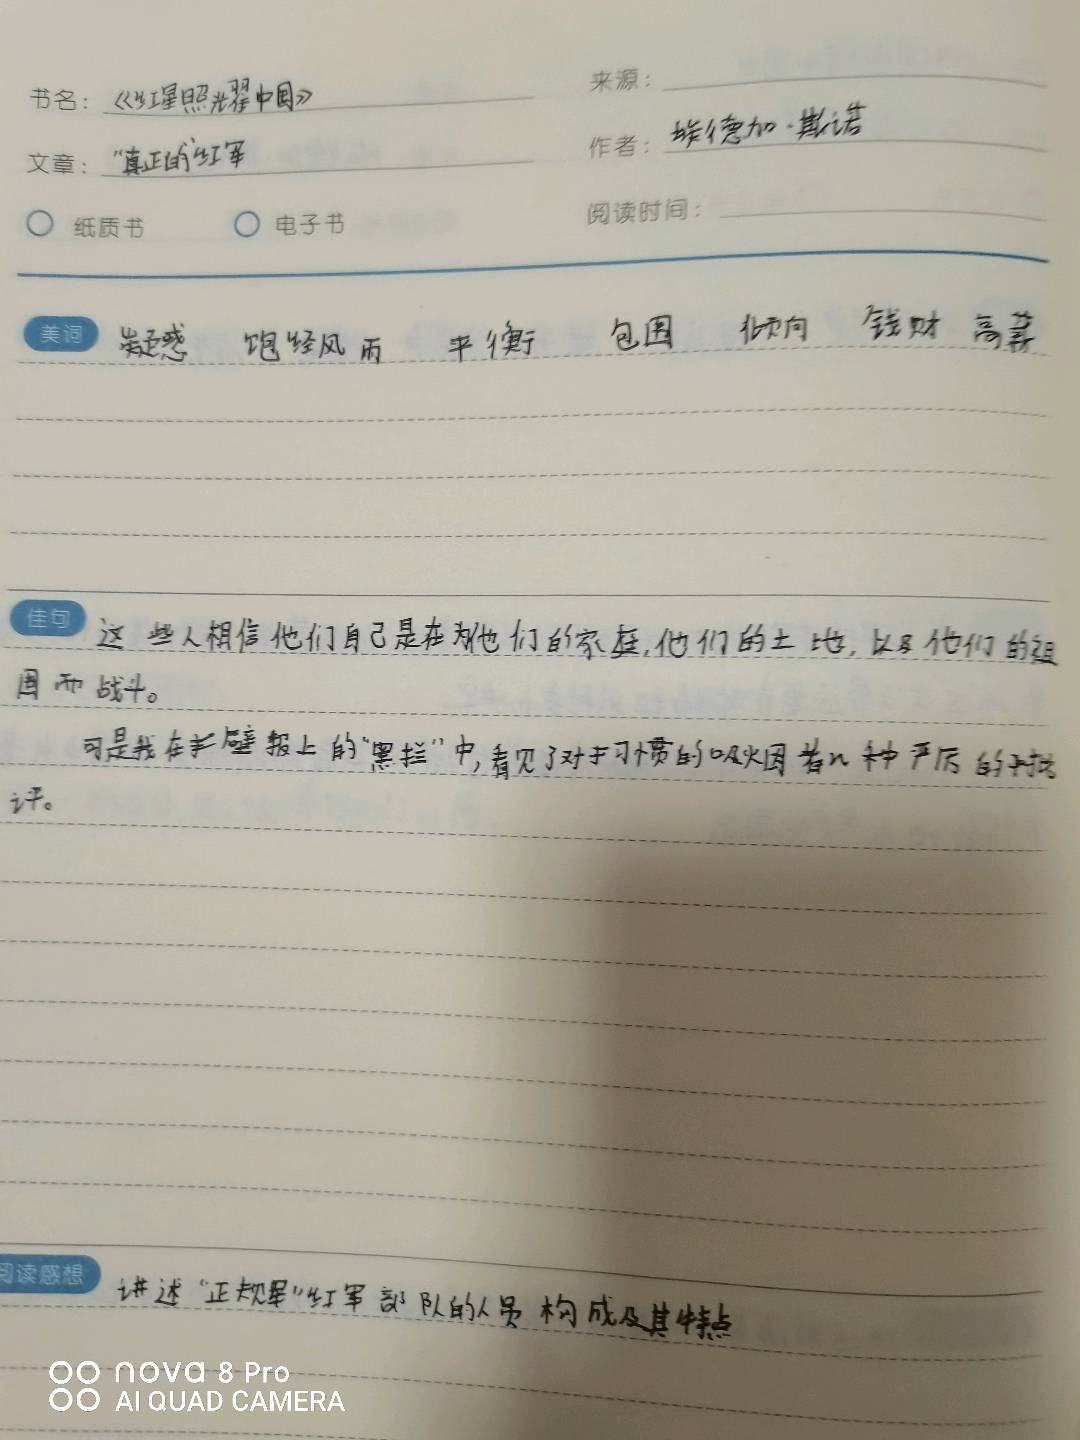 书名：《红星照耀中国》
来源：
文章："真正的"红军
作者：埃德加·斯诺
纸质书 电子书
阅读时间：
美词 疑惑 饱经风雨 平衡 包围 倾向 钱财 高薪
佳句 这些人相信他们自己是在为他们的家庭,他们的土地,以及他们的祖
国而战斗。
可是我在 壁报上的"黑栏"中,看见了对于习惯的吸烟者 种严厉的 批
评。
阅读感想 讲述"正规军"红军部队的人员构成及其特点
nova 8 Pro
AI QUAD CAMERA